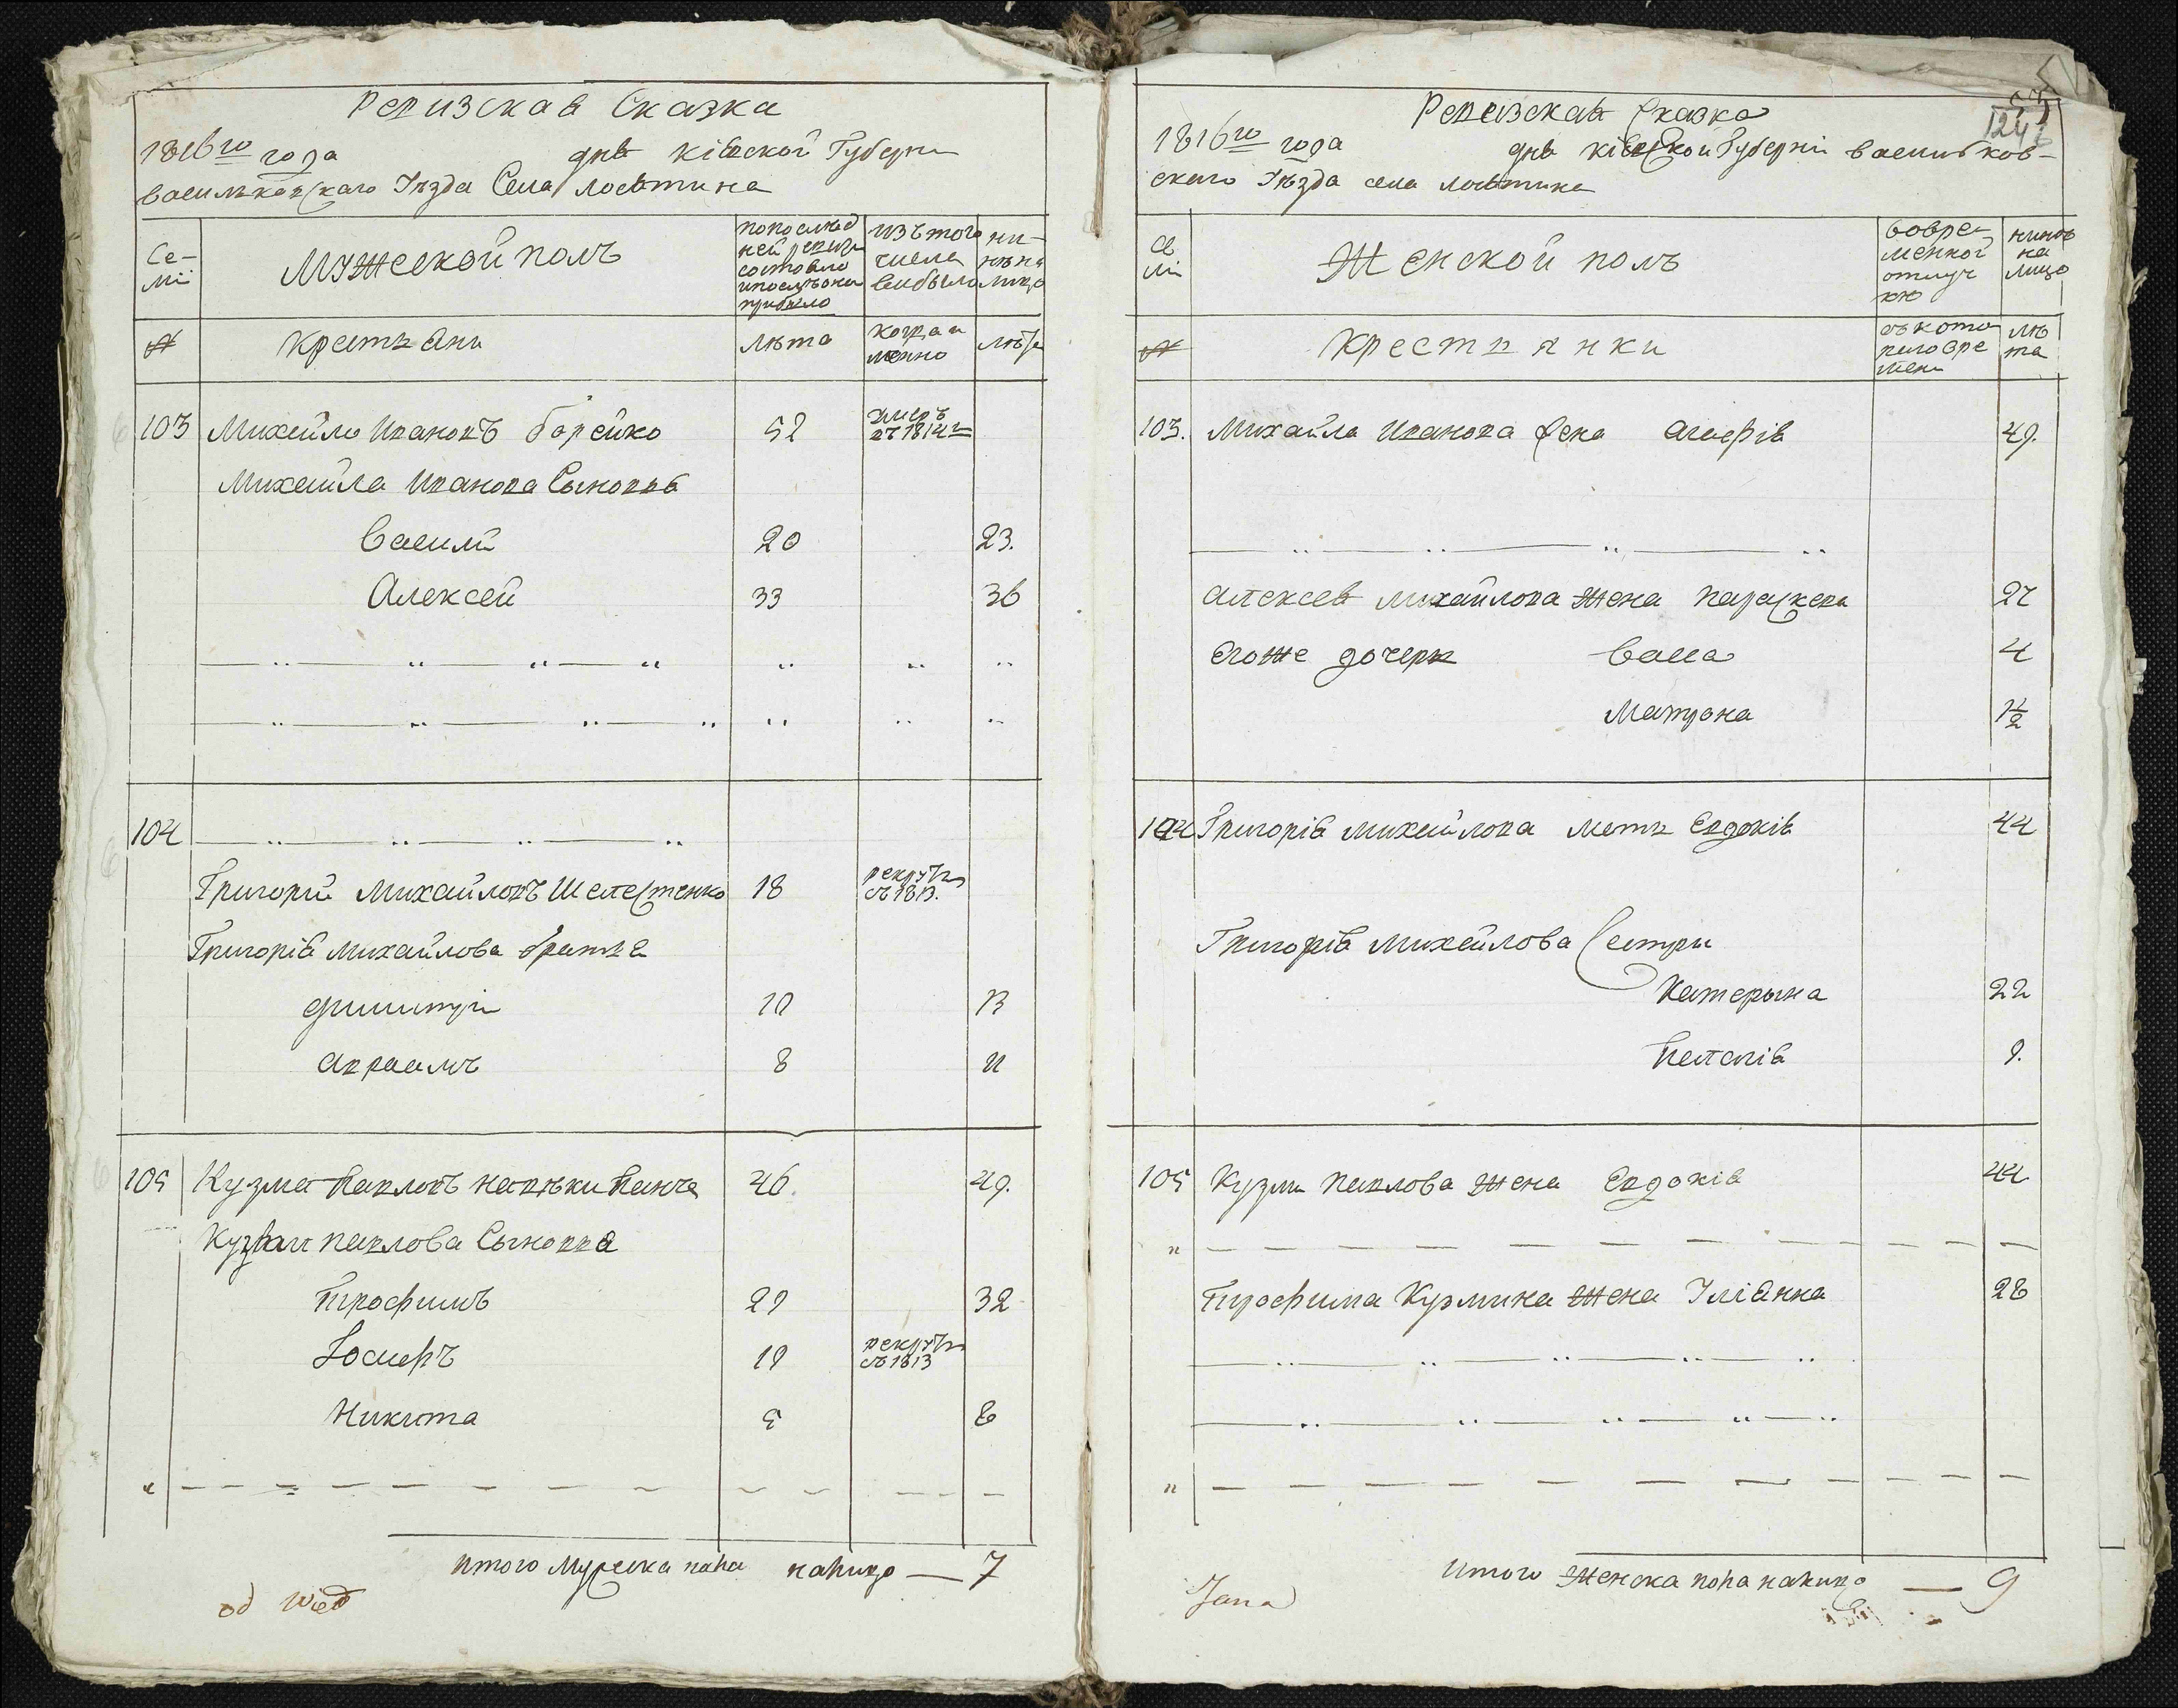 Ревизская Сказка
1816го года дня Кіевской Губерни
васильковскаго Уезда Села лосятина
Се-
мїи
Мужеской полъ
попослед
ней ревизи
состояло
ипослѣоной
прибыло
изътого
числа
выбыло
ни-
нѣна
лицо
№
Крестьяни
лѣта
когда и
менно
лѣта
103 Михайло Ивановъ борейко 52 умеръ въ 1814г
Михайла Иванова Сыновья
васили 20 23.
Алексей 33 36
104
Григорий Михайловъ Шелестенко 18 рекрутъ въ 1813.
Григорія Михайлова братья
димитри 10 13
авраамъ 8 11
105 Кузма Павловъ 46. 49.
Кузми павлова Сыновья
трофимъ 29 32
Іосифъ 19 рекрутъ въ 1813
Никита 5 8
итого мужеска пола налицо — 7
od wieд
Ревизская Сказка
124
1816го года дня кіевской Губерніи васильков-
скаго Уезда села лосятина
Се
мїи
Женской полъ
вовре-
менной
отлуч
ки
нинѣ
на
лицо
№
Крестьянки
съкото
раговре
мени
лѣ
та
103. Михайла Иванова жена агафія 49.
алексея михайлова жена параскева 27
егоже дочеря васса 4
матрона 1½
104 Григорія михайлова мать евдокія 44
Григорія михайлова Сестри
Катерына 22
Наталія 9.
105 Кузми павлова жена Евдокія 44
трофима Кузмина жена Уліянна 28
итого женска пола налицо — 9
Jana